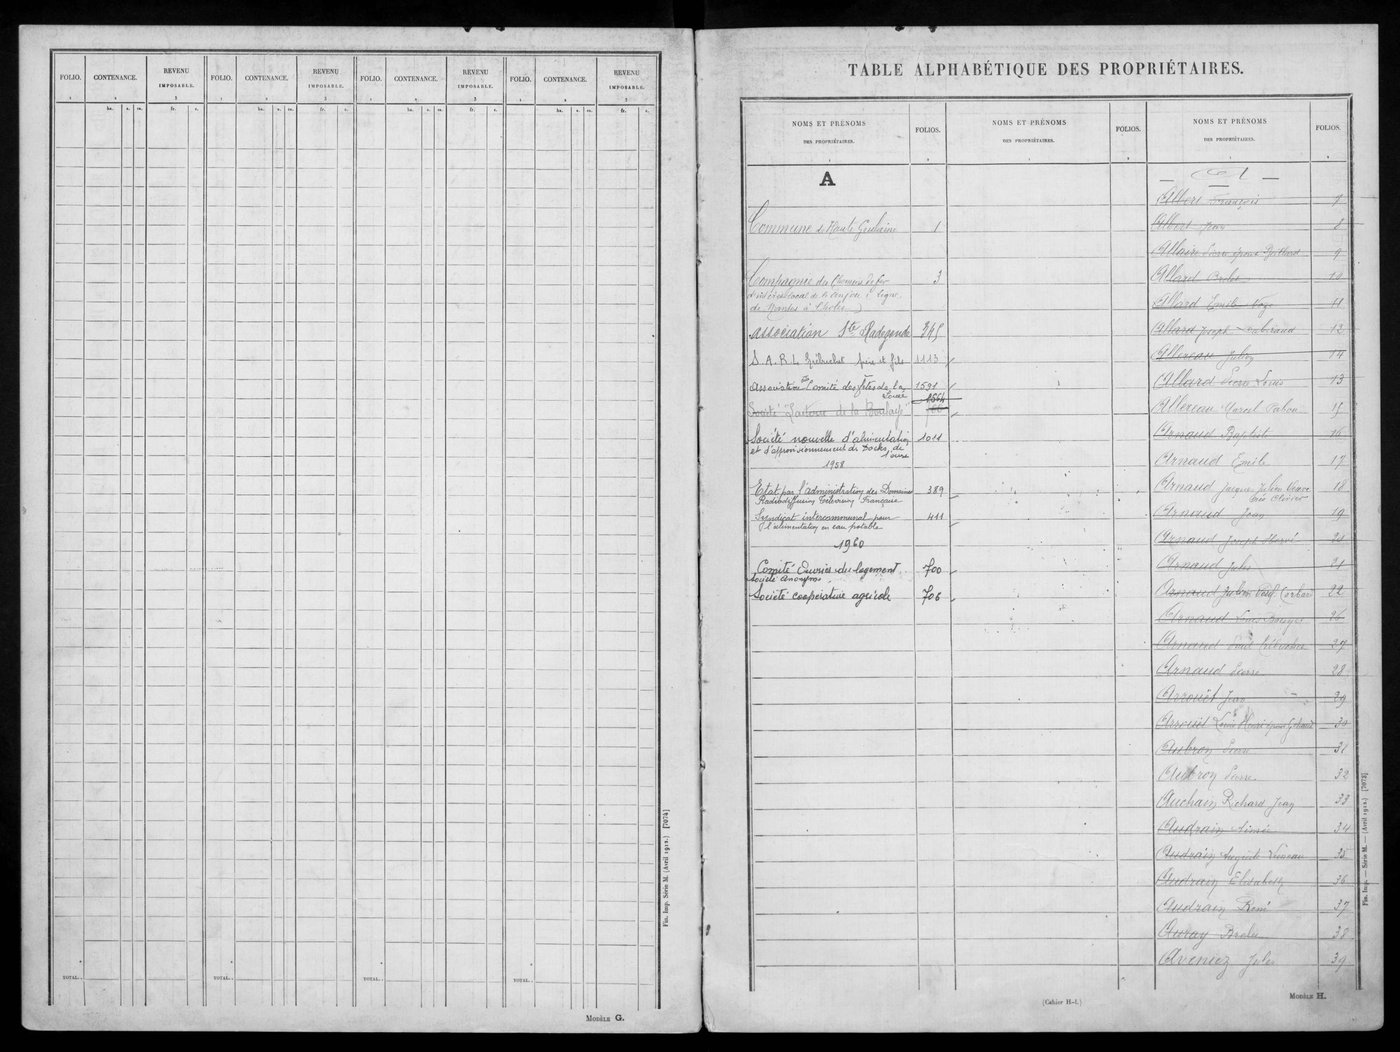 FOLIO. CONTENANCE. REVENU IMPOSABLE. FOLIO. CONTENANCE. REVENU IMPOSABLE. FOLIO. CONTENANCE. REVENU IMPOSABLE. FOLIO. CONTENANCE. REVENU IMPOSABLE.
1 2 3 1 2 3 1 2 3 1 2 3
ha. a. ca. fr. c. ha. a. ca. fr. c. ha. a. ca. fr. c. ha. a. ca. fr. c.
TOTAL. TOTAL. TOTAL. TOTAL.
Fin. Imp. Série M. (Avril 1912.) [7074]
MODÈLE G.
TABLE ALPHABÉTIQUE DES PROPRIÉTAIRES.
NOMS ET PRÉNOMS
DES PROPRIÉTAIRES.
FOLIOS.
NOMS ET PRÉNOMS
DES PROPRIÉTAIRES.
FOLIOS.
NOMS ET PRÉNOMS
DES PROPRIÉTAIRES.
FOLIOS.
A
Commune de Haute Goulaine 1
Compagnie des Chemins de fer 3
d'intérêt local de l'Anjou : ligne
de Nantes à Cholet
Association Ste Radegonde 345
S.A.R.L. père et fils 1113
Association Comité des fêtes de la 1591
1564
Société de la
Société nouvelle d'alimentation 1011
et d'approvisionnement des Docks de
l'ouest
1958
Etat par l'administration des Domaines 389
Radiodiffusion Télévision Française
Syndicat intercommunal pour 411
l'alimentation en eau potable
1960
Comité Ouvrier du logement 700
Société Anonyme
Société coopérative agricole 706
A
Albert François 7
Albert Jean 8
Allaire Pierre époux 9
Allard 10
Allard Emile 11
Allard Joseph 12
Allereau Julien 14
Allard Pierre Louis 13
Allereau Marcel 15
Arnaud Baptiste 16
Arnaud Emile 17
Arnaud Jacques Julien Veuve 18
née Olivier
Arnaud Jean 19
Arnaud Joseph 20
Arnaud Jules 21
Arnaud Julien 22
Arnaud Louis 26
Arnaud 27
Arnaud Pierre 28
Arrouët Jean 29
Arrouët Louis 30
Aubron Pierre 31
Aubron Pierre 32
Auchain Richard Jean 33
Audrain Aimé 34
Audrain Auguste Luneau 35
Audrain Elisabeth 36
Audrain René 37
Auray 38
Aveniez Jules 39
Fin. Imp. — Série M. — (Avril 1912.) [7073]
(Cahier H-1.)
MODÈLE H.